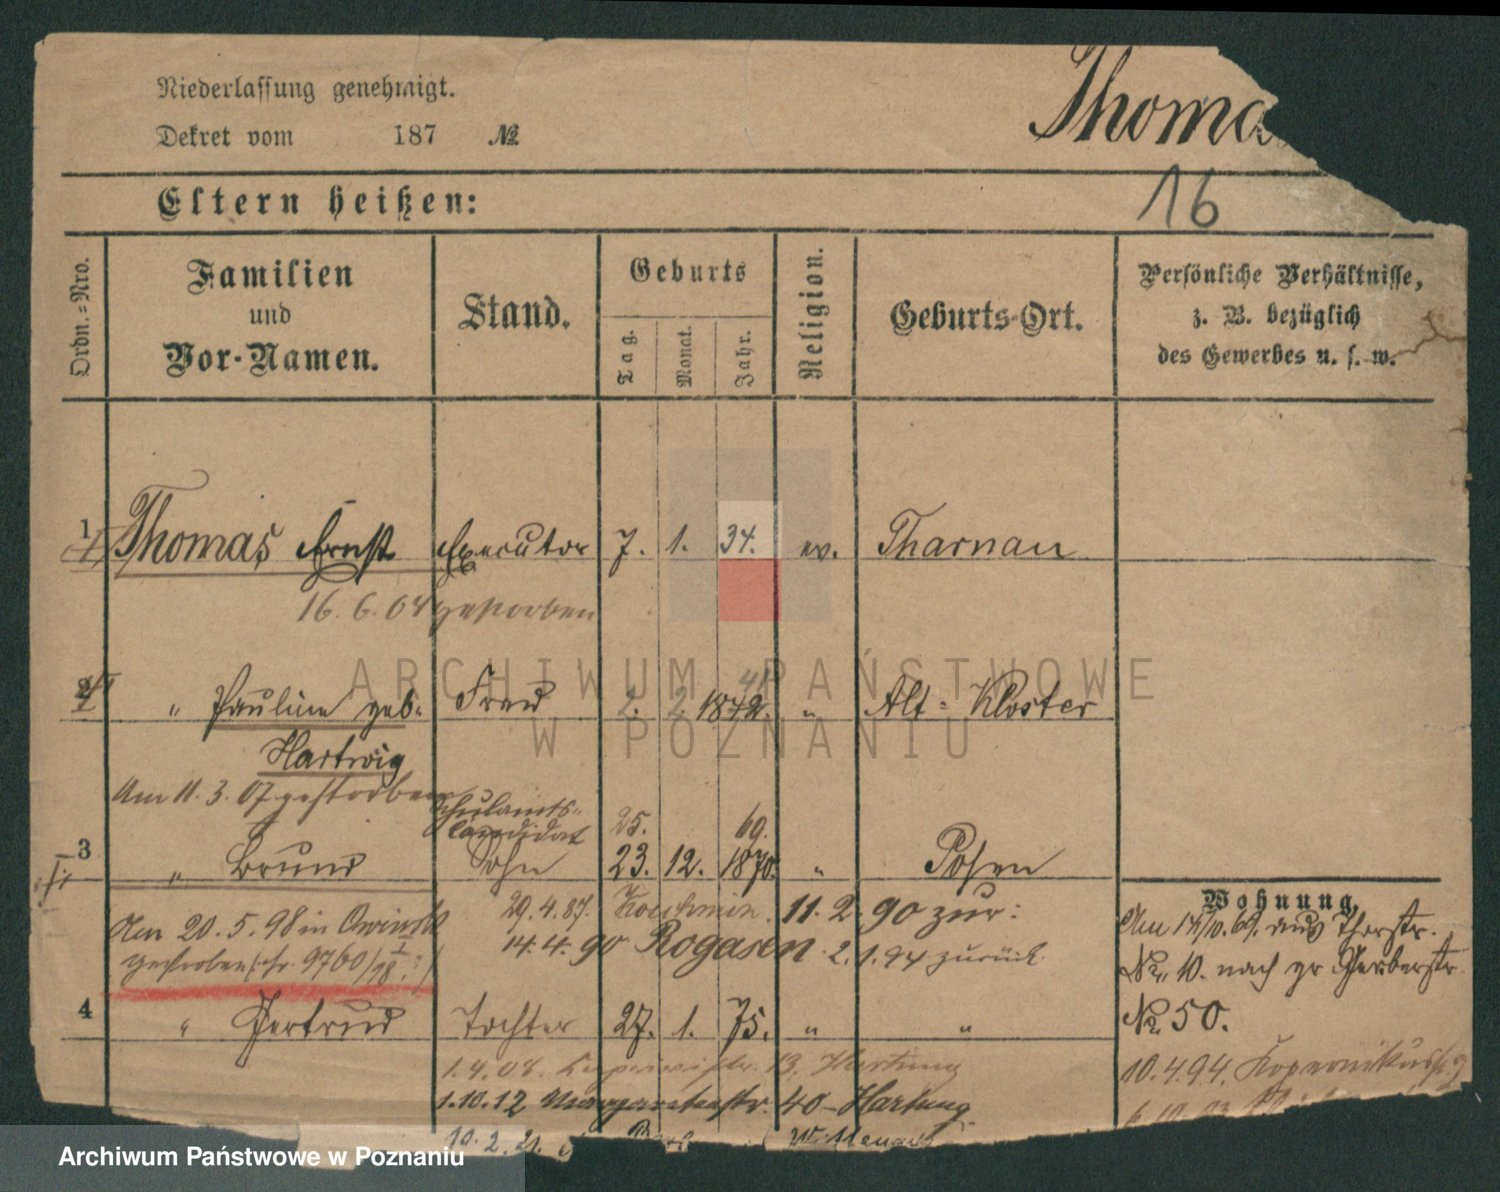 Niederlassung genehmigt.
Dekret vom 187 №
Thoma
16
Eltern heißen:
Ordn.-Nro.
Familien
und
Vor-Namen.
Stand.
Geburts
Tag.
Monat.
Jahr.
Religion.
Geburts-Ort.
Persönliche Verhältnisse,
z. B. bezüglich
des Gewerbes u. s. w.
1 Thomas Ernst Executor 7. 1. 34. ev. Tharnau
16.6.04 gestorben
ARCHIWUM PAŃSTWOWE
W POZNANIU
2 " Pauline geb. Frau 2. 2. 1842. " Alt-Kloster
Hartwig
Am 11.3.07 gestorben
Schulamts-
Candidat 25. 69.
3 " Bruno Sohn 23. 12. 1870. " Posen
Am 20.5.98 in Owinsk
gestorben 9760/98
29.4.87. 11.2.90 zur:
14.4.90 Rogasen 2.1.94 zurück
4 " Gertrud Tochter 27. 1. 75. " "
1.4.08. 13. Hartung
1.10.12 Margaretenstr. 40 - Hartung
10.2.21.
Wohnung.
Am 14/10.69. aus Thorstr.
No. 10. nach gr Gerberstr
No. 50.
10.4.94. Kopernikusstr 9
Archiwum Państwowe w Poznaniu